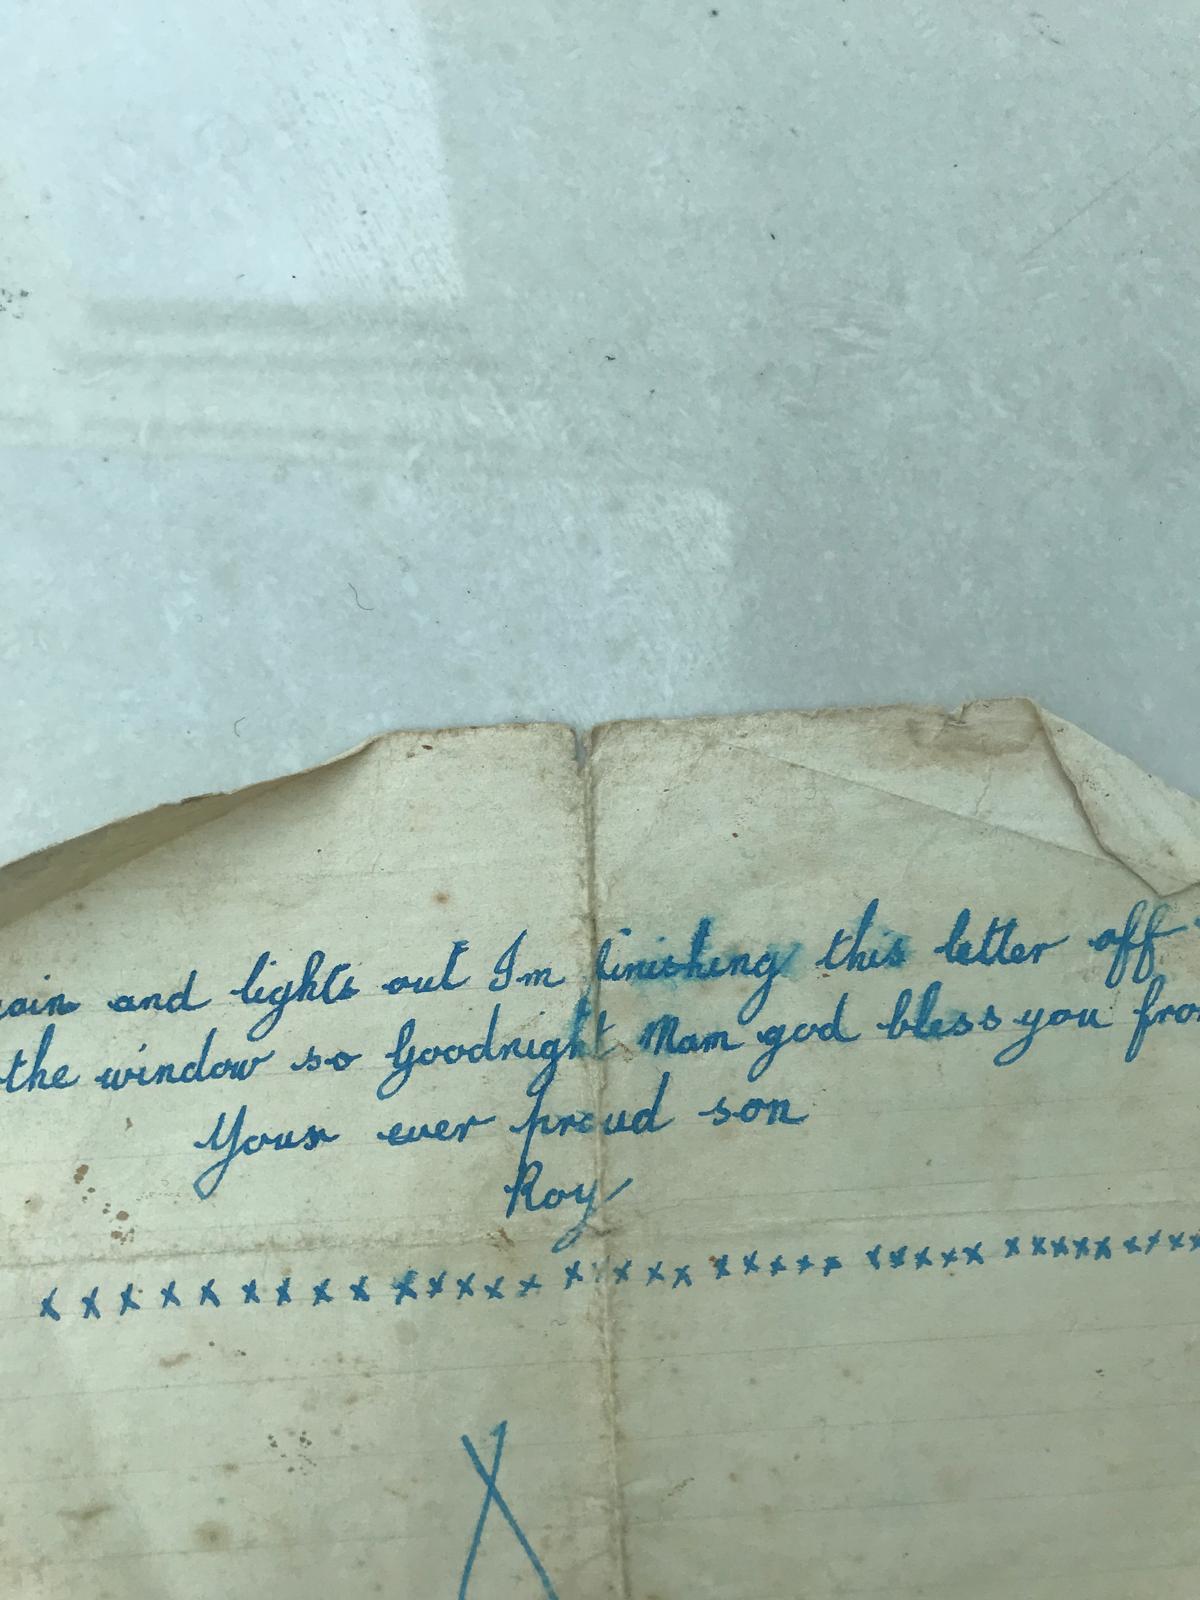 and lights out Im finishing this letter off
the window so Goodnight Mam god bless you from
Yours ever proud son
Roy
x x x x x x x x x x x x x x x x x x x x x x x x x x x x x x x x x x x x x x
X